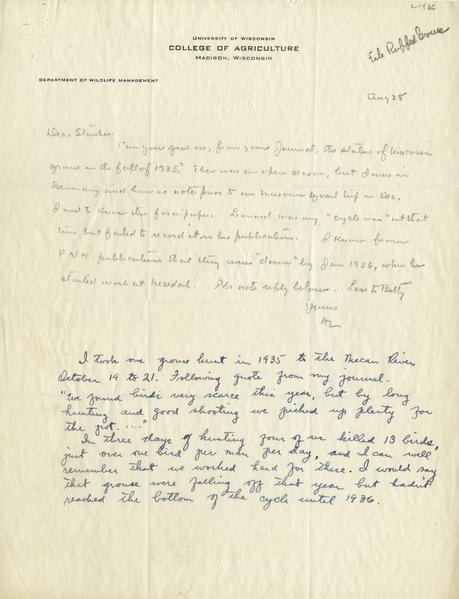 L 1936
File Ruffed Grouse
UNIVERSITY OF WISCONSIN
COLLEGE OF AGRICULTURE
MADISON, WISCONSIN
DEPARTMENT OF WILDLIFE MANAGEMENT
Aug 28
Dear
Can you give me, from your Journal, the status of Wisconsin
grouse in the fall of 1935? There was an open season, but I was in
Germany and have no notes prior to our Missouri quail trip in Dec.
I need to know this for a paper. Leonard was my "cycle man" at that
time but failed to record it in his publications. I know from
FNH publications that they were "down" by Jan 1936, when he
started work at Necedah. Pls note reply below. Love to Betty
Yours
AL
I took one grouse hunt in 1935 to the Mecan River
October 19 to 21. Following quote from my journal.
"We found birds very scarce this year, but by long
hunting and good shooting we picked up plenty for
the pot...."
In three days of hunting four of us killed 13 birds,
just over one bird per man per day, and I can well
remember that we worked hard for these. I would say
that grouse were falling off that year but hadn't
reached the bottom of the cycle until 1936.